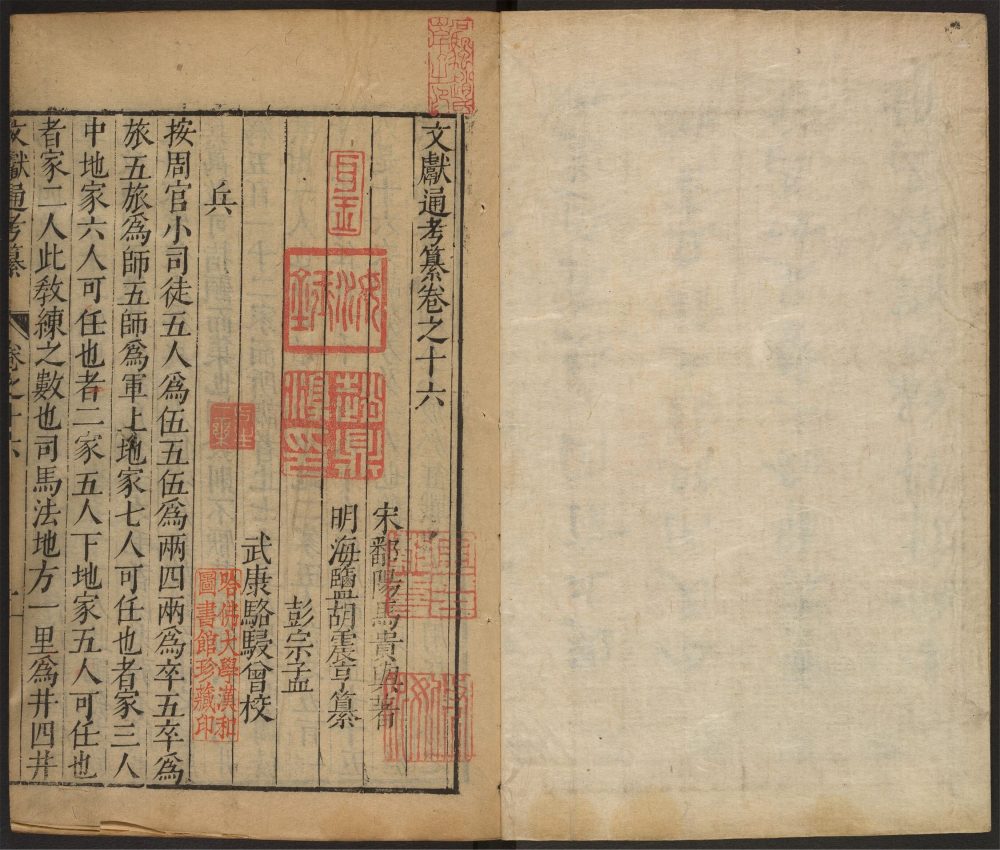 文獻通考纂卷之十六
宋鄱陽馬貴與著
明海鹽胡震亨纂
彭宗孟
武康駱駸曾校
兵
按周官小司徒五人爲伍五伍爲兩四兩爲卒五卒爲
旅五旅爲師五師爲軍上地家七人可任也者家三人
中地家六人可任也者二家五人下地家五人可任也
者家二人此教練之數也司馬法地方一里爲井四井
文獻通考纂 卷之十六 一
哈佛大學漢和
圖書館珍藏印